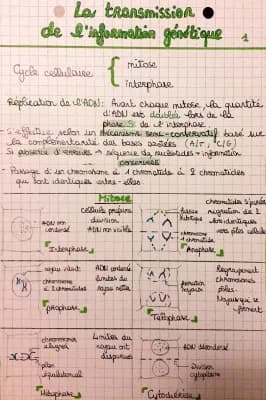 La transmission
de l'information génétique
1
Cycle cellulaire { mitose
interphase
Réplication de l'ADN: Avant chaque mitose, la quantité
d'ADN est doublée lors de la
phase S de l'interphase
S'effectue selon un mécanisme semi-conservatif basé sur
la complémentarité des bases azotées (A/T, C/G)
Si absence d'erreurs → séquence de nucléotides + information
conservées
Passage d'un chromosome à 1 chromatide à 2 chromatides
qui sont identiques entre-elles.
Mitose
ADN non
condensé
Cellule prépare
division
ADN non visible
Interphase
chromatides
migration de 2
lots identiques
vers pôles cellule
chromosome
chromatides
Anaphase
noyau
chromosome
à 2 chromatides
ADN condensé
limites du
noyau
Prophase
Regroupement
chromosomes
pôles.
Noyaux qui se
forment
Télophase
chromosome
plan
équatorial
Limites du
noyau ont
disparues
Métaphase
ADN décondensé
Division
cytoplasme
Cytodiérèse